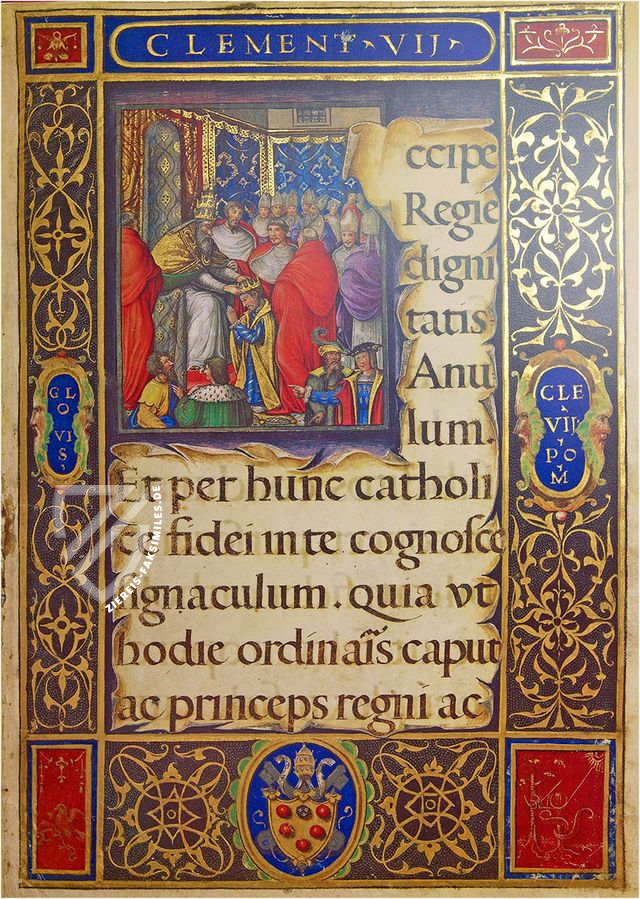 CLEMENT VIJ
ccipe
Regie
digni
tatis
Anu
lum.
CLO
VIS
CLE
VIJ
PO
M
Et per hunc catholi
ce fidei in te cognosce
signaculum. quia vt
hodie ordinaĩs caput
ac princeps regni ac
ZIEREIS-FAKSIMILES.DE